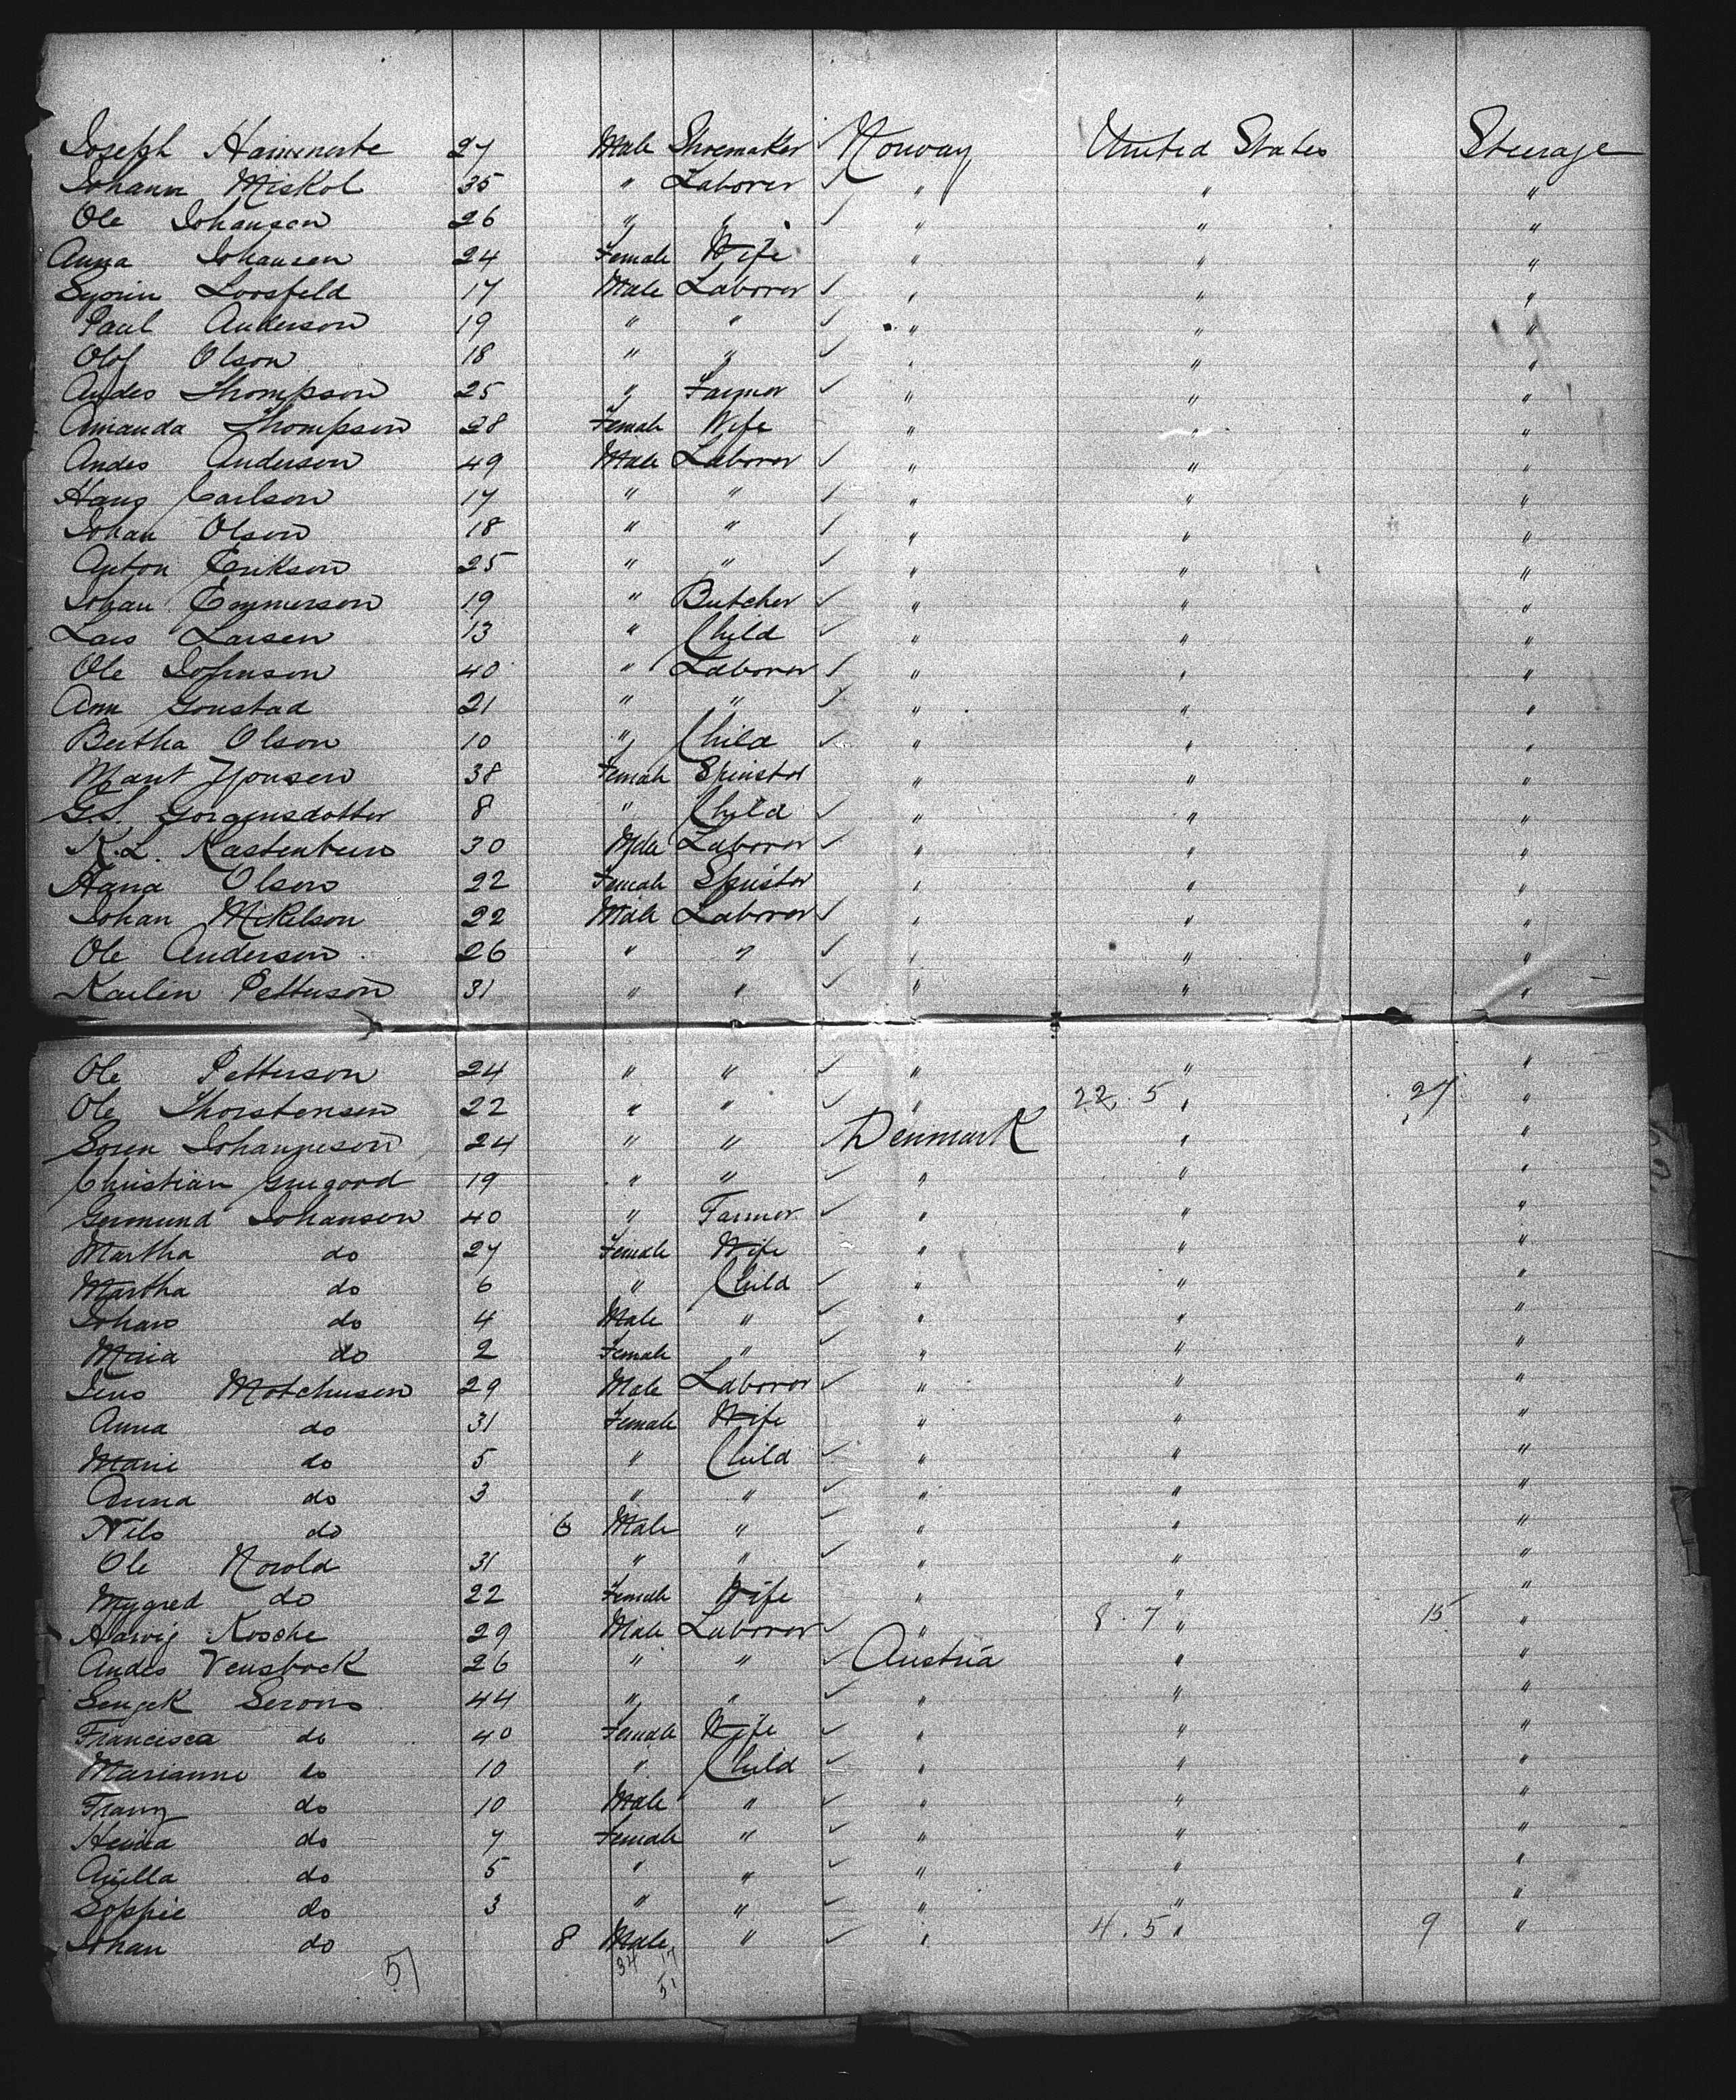 Joseph Hammerste 27 Male Shoemaker ✓ Norway United States Steerage
Johann Miskol 35 " Laborer ✓ " " "
Ole Johanson 26 " " ✓ " " "
Anna Johansen 24 Female Wife " " "
Syorin Loosfeld 17 Male Laborer ✓ " " "
Paul Anderson 19 " " ✓ " " "
Olof Olson 18 " " ✓ " " "
Andes Thompson 25 " Farmer ✓ " " "
Amanda Thompson 28 Female Wife " " "
Andes Anderson 49 Male Laborer ✓ " " "
Hans Carlson 17 " " ✓ " " "
Johan Olson 18 " " ✓ " " "
Anton Erikson 25 " " ✓ " " "
Johan Emmerson 19 " Butcher ✓ " " "
Lars Larsen 13 " Child ✓ " " "
Ole Johnson 40 " Laborer ✓ " " "
Ann Gonstad 21 " " ✓ " " "
Bertha Olson 10 " Child ✓ " " "
Mant Yonsen 38 Female Spinster " " "
G.S. Gorgensdotter 8 " Child ✓ " " "
K.L. Kastenbern 30 Male Laborer ✓ " " "
Hana Olson 22 Female Spinster " " "
Johan Mikelson 22 Male Laborer ✓ " " "
Ole Anderson 26 " " ✓ " " "
Karlin Petterson 31 " " ✓ " " "
Ole Petterson 24 " " ✓ " " "
Ole Thorstensen 22 " " ✓ " 22.5 " 27 "
Soren Johanneson 24 " " ✓ Denmark " "
Christian 19 " " ✓ " " "
Germund Johanson 40 " Farmer ✓ " " "
Martha do 27 Female Wife " " "
Martha do 6 " Child ✓ " " "
Johan do 4 Male " ✓ " " "
Maria do 2 Female " ✓ " " "
Jens Motchusen 29 Male Laborer ✓ " " "
Anna do 31 Female Wife " " "
Marie do 5 " Child ✓ " " "
Anna do 3 " " ✓ " " "
Nils do 6 Male " ✓ " " "
Ole Norold 31 " " ✓ " " "
Mygred do 22 Female Wife " " "
Harvig Kosche 29 Male Laborer ✓ " 8.7 " 15 "
Andes Vensbock 26 " " ✓ Austria " "
Sengek Serons 44 " " ✓ " " "
Francisca do 40 Female Wife ✓ " " "
Marianne do 10 " Child ✓ " " "
Franz do 10 Male " ✓ " " "
Heina do 7 Female " ✓ " " "
Aulla do 5 " " ✓ " " "
Soppie do 3 " " ✓ " " "
Johan do 8 Male " ✓ " 4.5 " 9 "
51 34 17
51